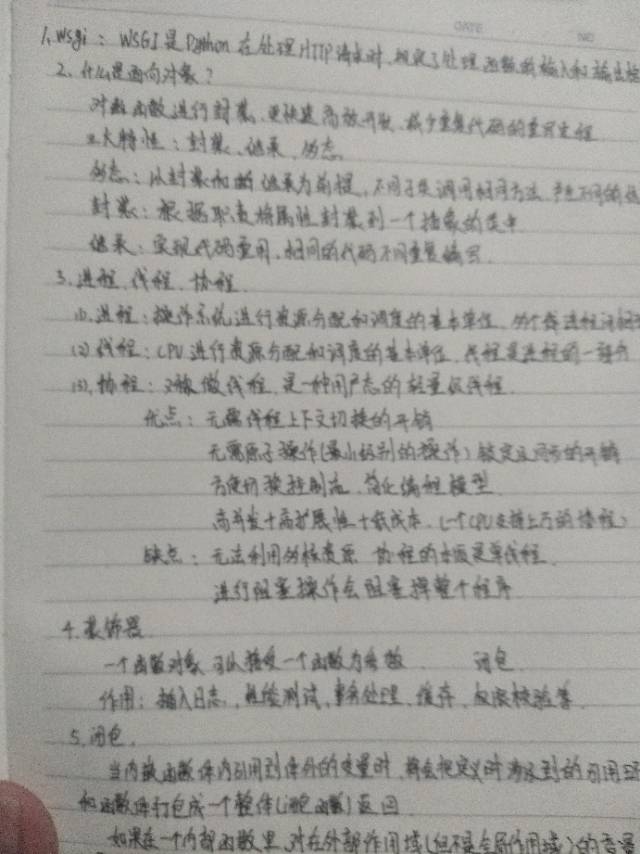 DATE NO
1. wsgi：WSGI是Python在处理HTTP请求时，规定了处理函数的输入和输出
2. 什么是面向对象？
对函数进行封装，更快速高效开发，减少重复代码的重写过程
三大特性：封装、继承、多态
多态：以封装和继承为前提，不同子类调用相同方法，产生不同的
封装：根据职责将属性封装到一个抽象的类中
继承：实现代码重用，相同的代码不用重复编写
3. 进程、线程、协程
(1). 进程：操作系统进行资源分配和调度的基本单位，多个进程
(2) 线程：CPU进行资源分配和调度的基本单位，线程是进程的一部分
(3). 协程：又被做线程，是一种用户态的轻量级线程.
优点：无需线程上下文切换的开销
无需原子操作(最小级别的操作)锁定及同步的开销
方便切换控制流，简化编程模型
高并发+高扩展性+低成本.(一个CPU支持上万的协程)
缺点：无法利用多核资源 协程的本质是单线程.
进行阻塞操作会阻塞掉整个程序
4. 装饰器
一个函数对象 可以接受一个函数为参数 闭包
作用：插入日志，性能测试，事务处理，缓存，权限校验等.
5. 闭包.
当内嵌函数体内引用到体外的变量时，将会把定义时涉及到的引用环
和函数体打包成一个整体(闭包函数)返回
如果在一个内部函数里，对在外部作用域(但不是全局作用域)的变量